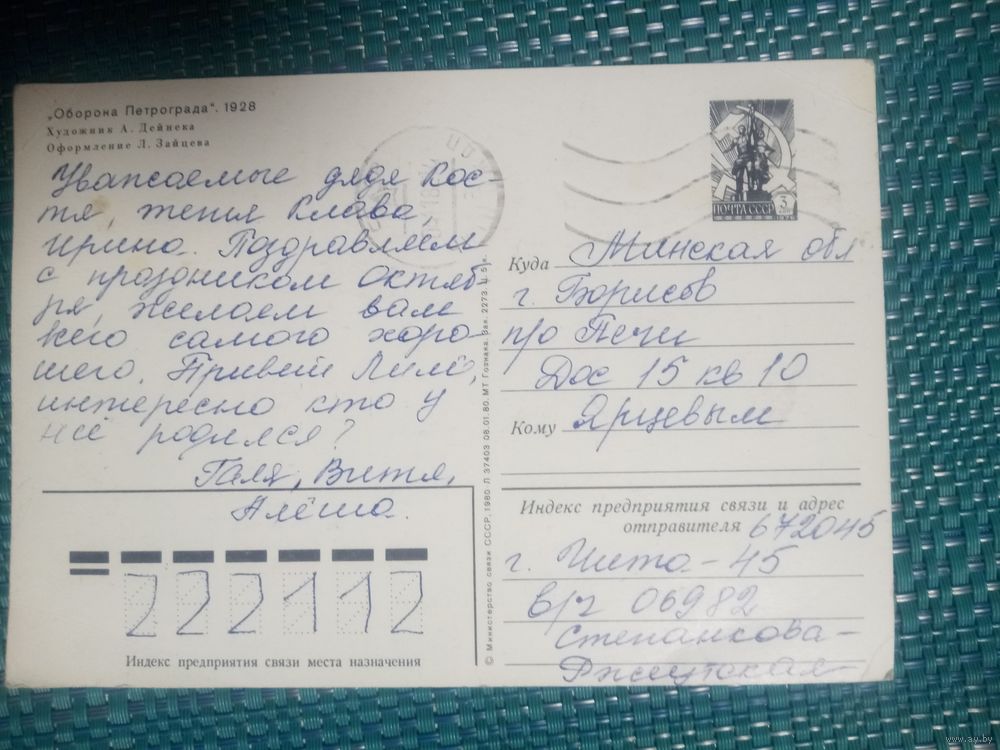 „Оборона Петрограда". 1928
Художник А. Дейнека
Оформление Л. Зайцева
Уважаемые дядя Кос
тя, тётя Клава,
Ирина. Поздравляем
с праздником Октяб
ря, желаем вам
всего самого хоро-
шего. Привет Лиле,
интересно кто у
неё родился?
Галя, Витя,
Алёша.
ПОЧТА СССР 3
Куда Минская обл
г. Борисов
п/о Печи
Дос 15 кв 10
Кому Ярцевым
Индекс предприятия связи и адрес
отправителя 672045
г. Чита-45
в/ч 06982
Степанкова-
222112
Индекс предприятия связи места назначения
© Министерство связи СССР, 1980. Л 37403 08.01.80. МТ Гознака. Зак. 2273. Ц. 5 к.
www.ay.by